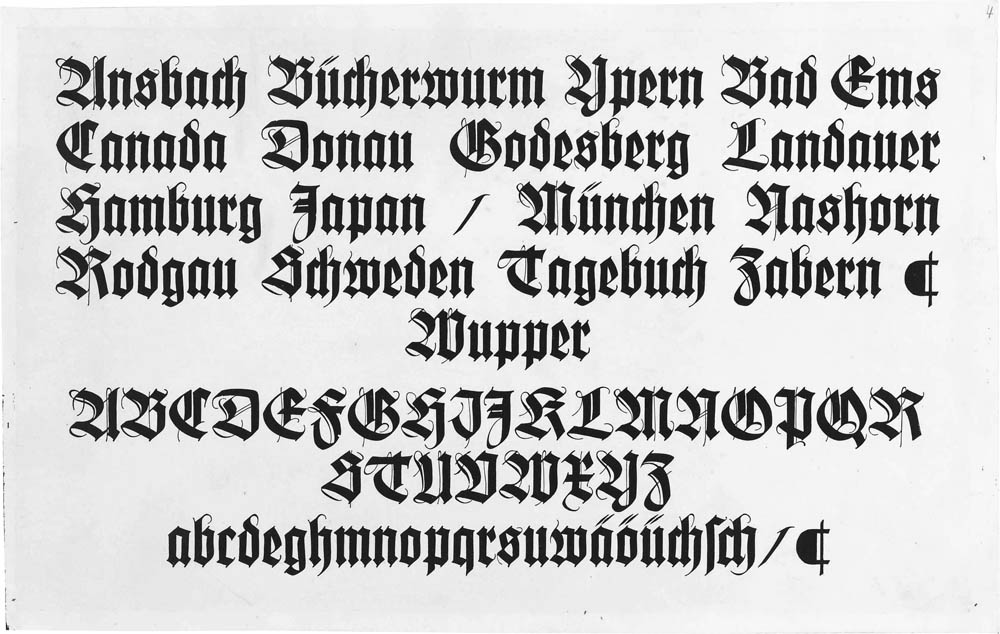 4
Ansbach Bücherwurm Ypern Bad Ems
Canada Donau Godesberg Landauer
Hamburg Japan / München Nashorn
Rodgau Schweden Tagebuch Zabern ¶
Wupper
ABCDEFGHIJKLMNOPQR
STUVWXYZ
abcdeghmnopqrsuwäöüchſch/¶